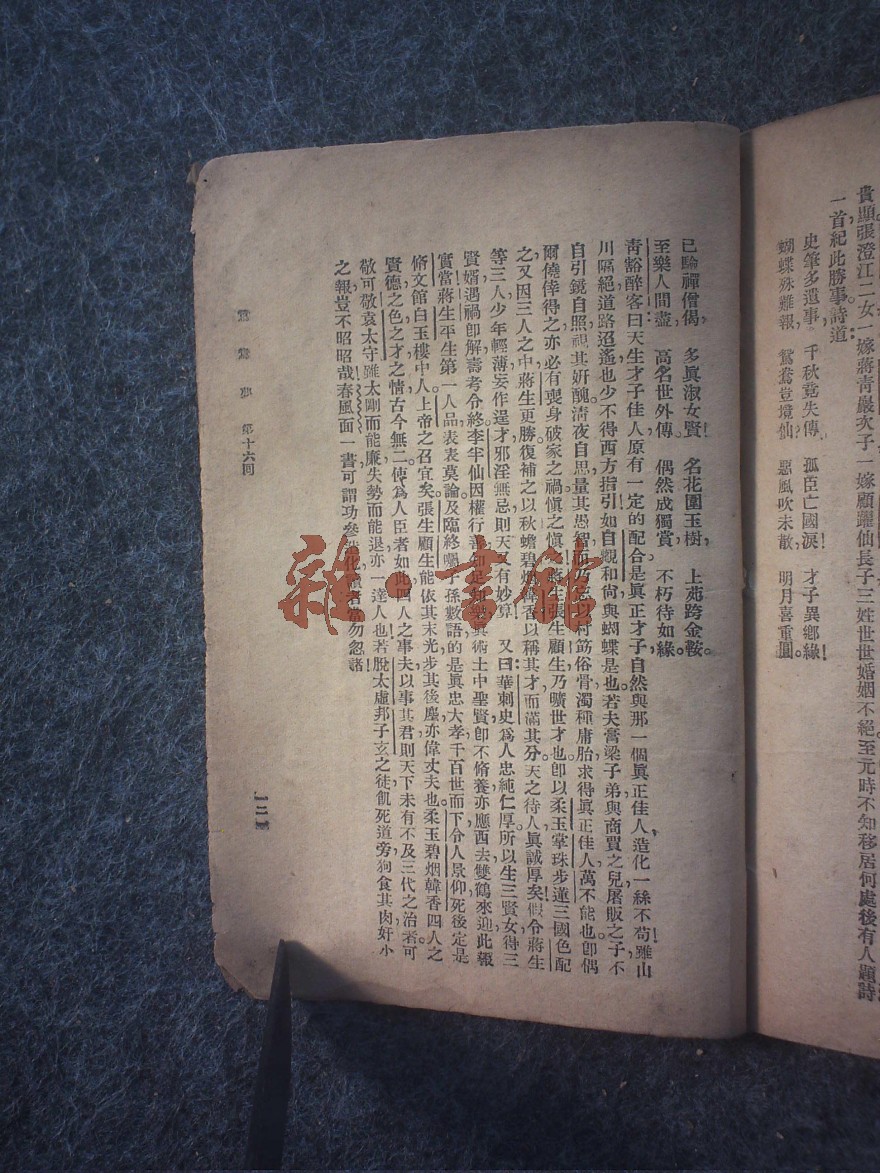 貴顯張澄江二女一嫁蔣青巖次子一嫁顧躍仙長子三姓世世婚姻不絕至元時不知移居何處後有人題詩
一首紀此勝事詩道
史筆多遺事。千秋竟失傳?孤臣亡國淚!才子異鄉緣!
蝴蝶殊難報,鴛鴦豈境仙,惡風吹未散,明月喜重圓。
已驗禪僧偈,多眞淑女賢!名花圍玉樹,上苑跨金鞍。
至樂人間盡,高名世外傳。偶然成獨賞,不朽待如緣。
靑豁醉客曰天生才子佳人原有一定的配合是眞正才子自然與那一個眞正佳人造化一絲不苟雖山
川隔絕道路迢遙也少不得西方指引如自觀和尙與蝴蝶是也若夫膏粱子弟與商賈之兒屠販之子不
自引鏡自照視其姸醜淸夜自思量其愚智而乃忘以村筋俗骨濁種庸胎求得眞正佳人萬不能也卽偶
爾僥倖得之亦必有喪身破家之禍愼之愼!蔣生張生顧生乃曠世才也卽以柔玉掌珠步蓮三國色配
之又因三人之中蔣生更勝復補之以秋蟾碧烟韓香以稱其才而滿其分天之待人眞誠厚矣假令蔣生
等三人少年輕薄妄作逞才邪淫無忌則天又有妙算 又曰華刺史爲人忠純仁厚所以生三賢女待三
賢婿遇禍卽解壽考令終李半仙因權行善知足知樂眞術士中聖賢卽不脩養亦應西去雙鶴來迎此報
實當蔣生平生第一人品表表莫論及臨終囑子孫數語的是眞忠大孝千百世而下令人景仰死後定是
脩文館白玉樓中人上帝之召宜矣張生顧生能依其末光步其後塵亦偉丈夫也柔玉碧烟韓香四人之
賢德之色之才之情古今無二使爲人臣者如此四人之事夫以事其君則天下未有不及三代之治者可
敬可敬袁太守雖太剛而能廉失勢而能退亦一達人也若脫太虛邦子玄之徒飢死道旁狗食其肉奸小
之報豈不昭昭哉春風面一書可謂功參造化讀者當勿忽諸
鴛鴦夢 第十六回
雜·書館